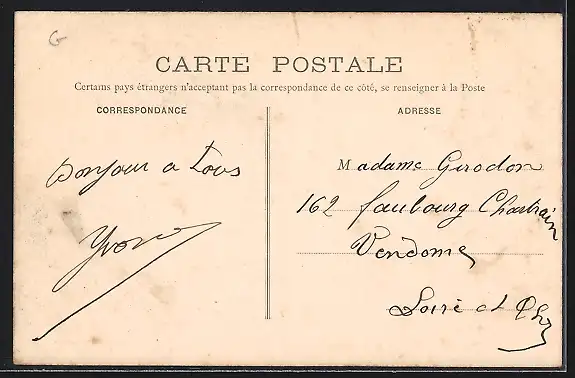 G
CARTE POSTALE
Certains pays étrangers n'acceptant pas la correspondance de ce côté, se renseigner à la Poste
CORRESPONDANCE
Bonjour a Tous
Yvonne
ADRESSE
Madame Girodon
162 faubourg Chartrain
Vendome
Loire et Cher